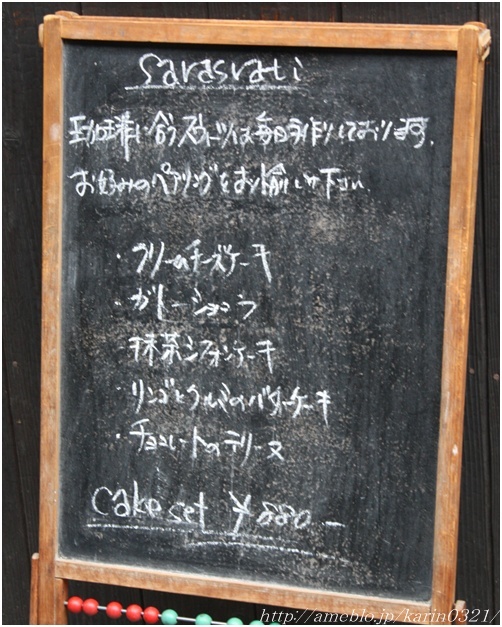 Sarasvati
珈琲に合うスイーツは毎日手作りしております。
お好みのペアリングをお愉しみ下さい
・クリームチーズケーキ
・ガトーショコラ
・抹茶シフォンケーキ
・リンゴとクルミのバターケーキ
・チョコレートのテリーヌ
cake set ¥880-
http://ameblo.jp/karin0321/